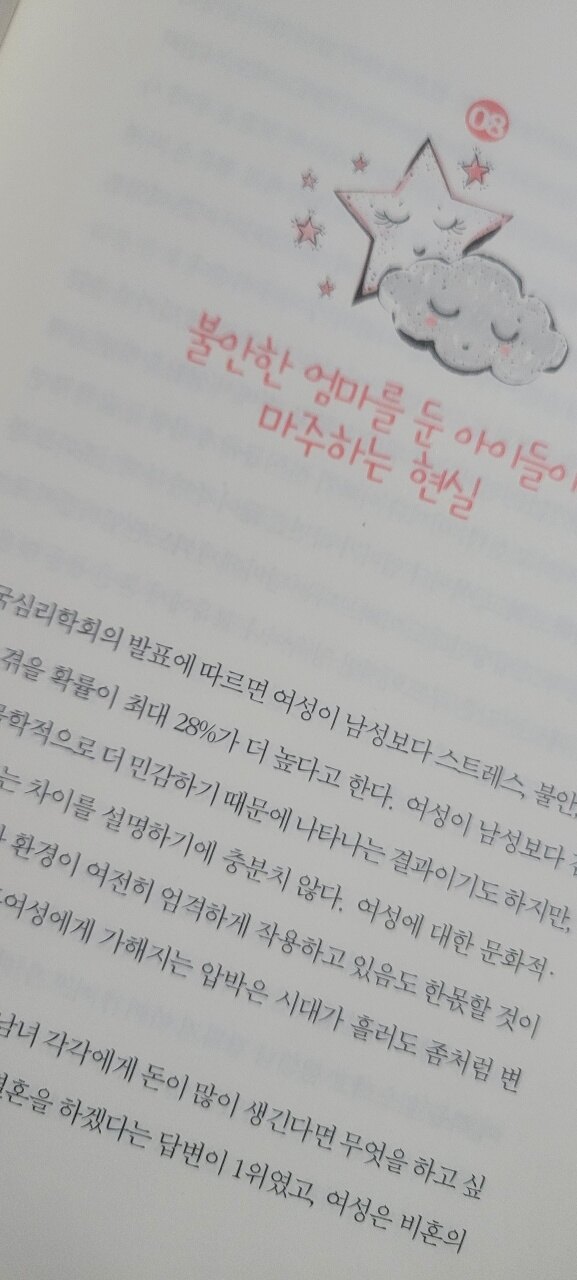 08
불안한 엄마를 둔 아이들이
마주하는 현실
국심리학회의 발표에 따르면 여성이 남성보다 스트레스, 불안,
겪을 확률이 최대 28%가 더 높다고 한다. 여성이 남성보다
더 민감하기 때문에 나타나는 결과이기도 하지만,
차이를 설명하기에 충분치 않다. 여성에 대한 문화적·
환경이 여전히 엄격하게 작용하고 있음도 한몫할 것이
여성에게 가해지는 압박은 시대가 흘러도 좀처럼 변
남녀 각각에게 돈이 많이 생긴다면 무엇을 하고 싶
결혼을 하겠다는 답변이 1위였고, 여성은 비혼의